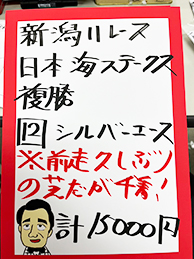 新潟11レース
日本海ステークス
複勝
12 シルバーエース
※前走久しぶり
の芝だが千両!
計15000円